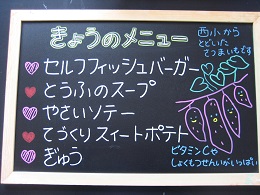 きょうのメニュー
セルフフィッシュバーガー
とうふのスープ
やさいソテー
てづくりスイートポテト
ぎゅう
西小から
とどいた
さつまいもです
ビタミンCや
しょくもつせんいがいっぱい